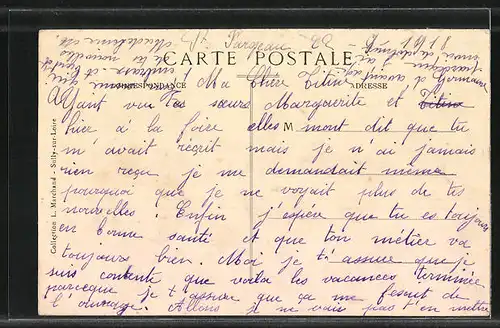 CARTE POSTALE
CORRESPONDANCE
ADRESSE
M
Collection L. Marchand - Sully-sur-Loire
Ma Chère Titine
Ayant vue tes sœurs Marguerite et Titine
hier à la foire elles mont dit que tu
m'avait réçrit mais je n'ai jamais
rien reçu je me demandait meme
pourquoi que je ne voyait plus de tes
nouvelles. Enfin j'espére que tu es toujours
en bonne santé et que ton métier va
toujours bien. Moi je t'assure que je
suis contente que voila les vacances terminée
parceque je t'assure que ça me fesait de
l'ouvrage. Allons je ne vais pas t'en mettre